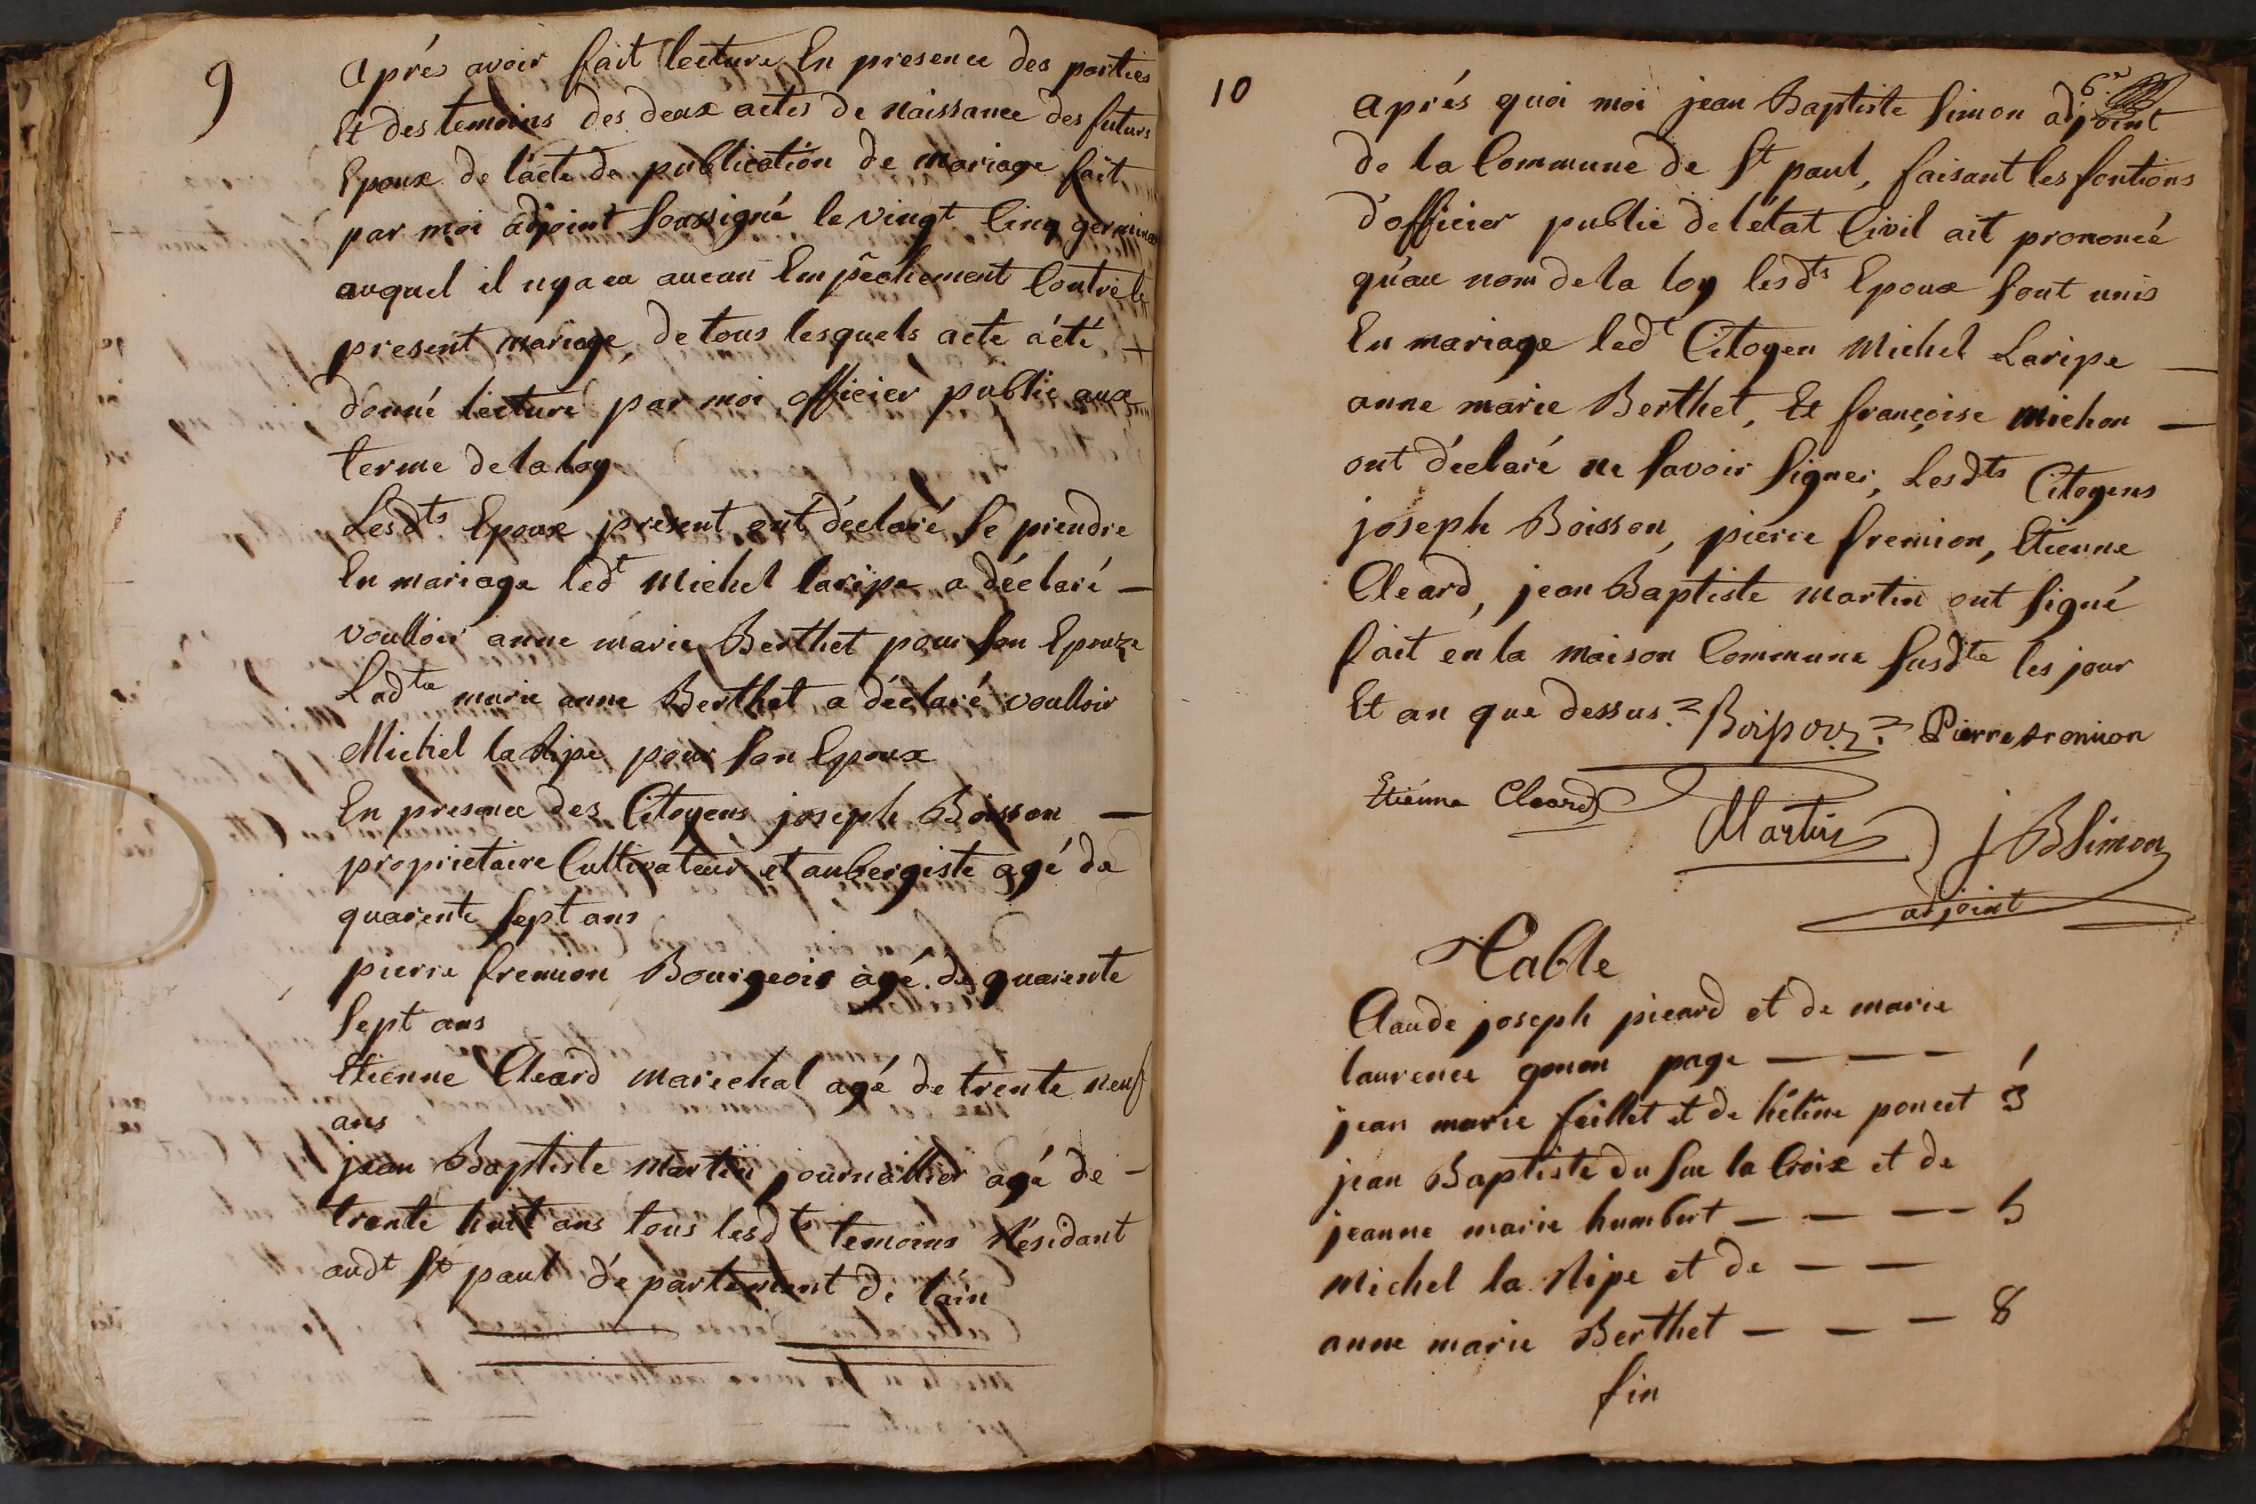 9
après avoir fait lecture En presence des parties
Et des temoins des deux actes de naissance des futurs
Epoux de l'acte de publication de mariage fait
par moi adjoint soussigné le vingt cinq germinal
auquel il nya eu aucun Empêchement Contre le
present mariage, de tous lesquels acte a été
donné lecture par moi officier public aux
terme de la loy
Lesdts Epoux present ont déclaré se prendre
En mariage ledt Michel laripe a déclaré —
voulloir anne marie Berthet pour son Epouze
Ladte marie anne Berthet a déclaré voulloir
Michel la Ripe pour son Epoux
En presence des Citoyens joseph Boisson —
proprietaire Cultivateur et aubergiste agé de
quarente sept ans
pierre fremion Bourgeois agé de quarente
sept ans
Etienne Cleard marechal agé de trente neuf
ans
jean Baptiste martin journallier agé de —
trente huit ans tous lesdts temoins Résidant
audt St paul département de l'ain
10
6e
après quoi moi jean Baptiste Simon adjoint
de la Commune de St paul, faisant les fontions
d'officier public de l'état Civil ait prononcé
qu'au nom de la loy lesdts Epoux sont unis
En mariage ledt Citoyen Michel Laripe —
anne marie Berthet, Et françoise Michon —
ont déclaré ne savoir signer, Lesdts Citoyens
joseph Boisson, pierre fremion, Etienne
Cleard, jean Baptiste martin ont signé
fait en la maison Commune susdte les jour
Et an que dessus. Boisson Pierre fremion
Etiénne Cleard
Martin
JBSimon
adjoint
Table
Claude joseph picard et de marie
laurence gonon page — — — 1
jean marie feillet et de héléne poncet 3
jean Baptiste du Sue la Croix et de
jeanne marie humbert — — — 5
Michel la Ripe et de — —
anne marie Berthet — — — 8
fin